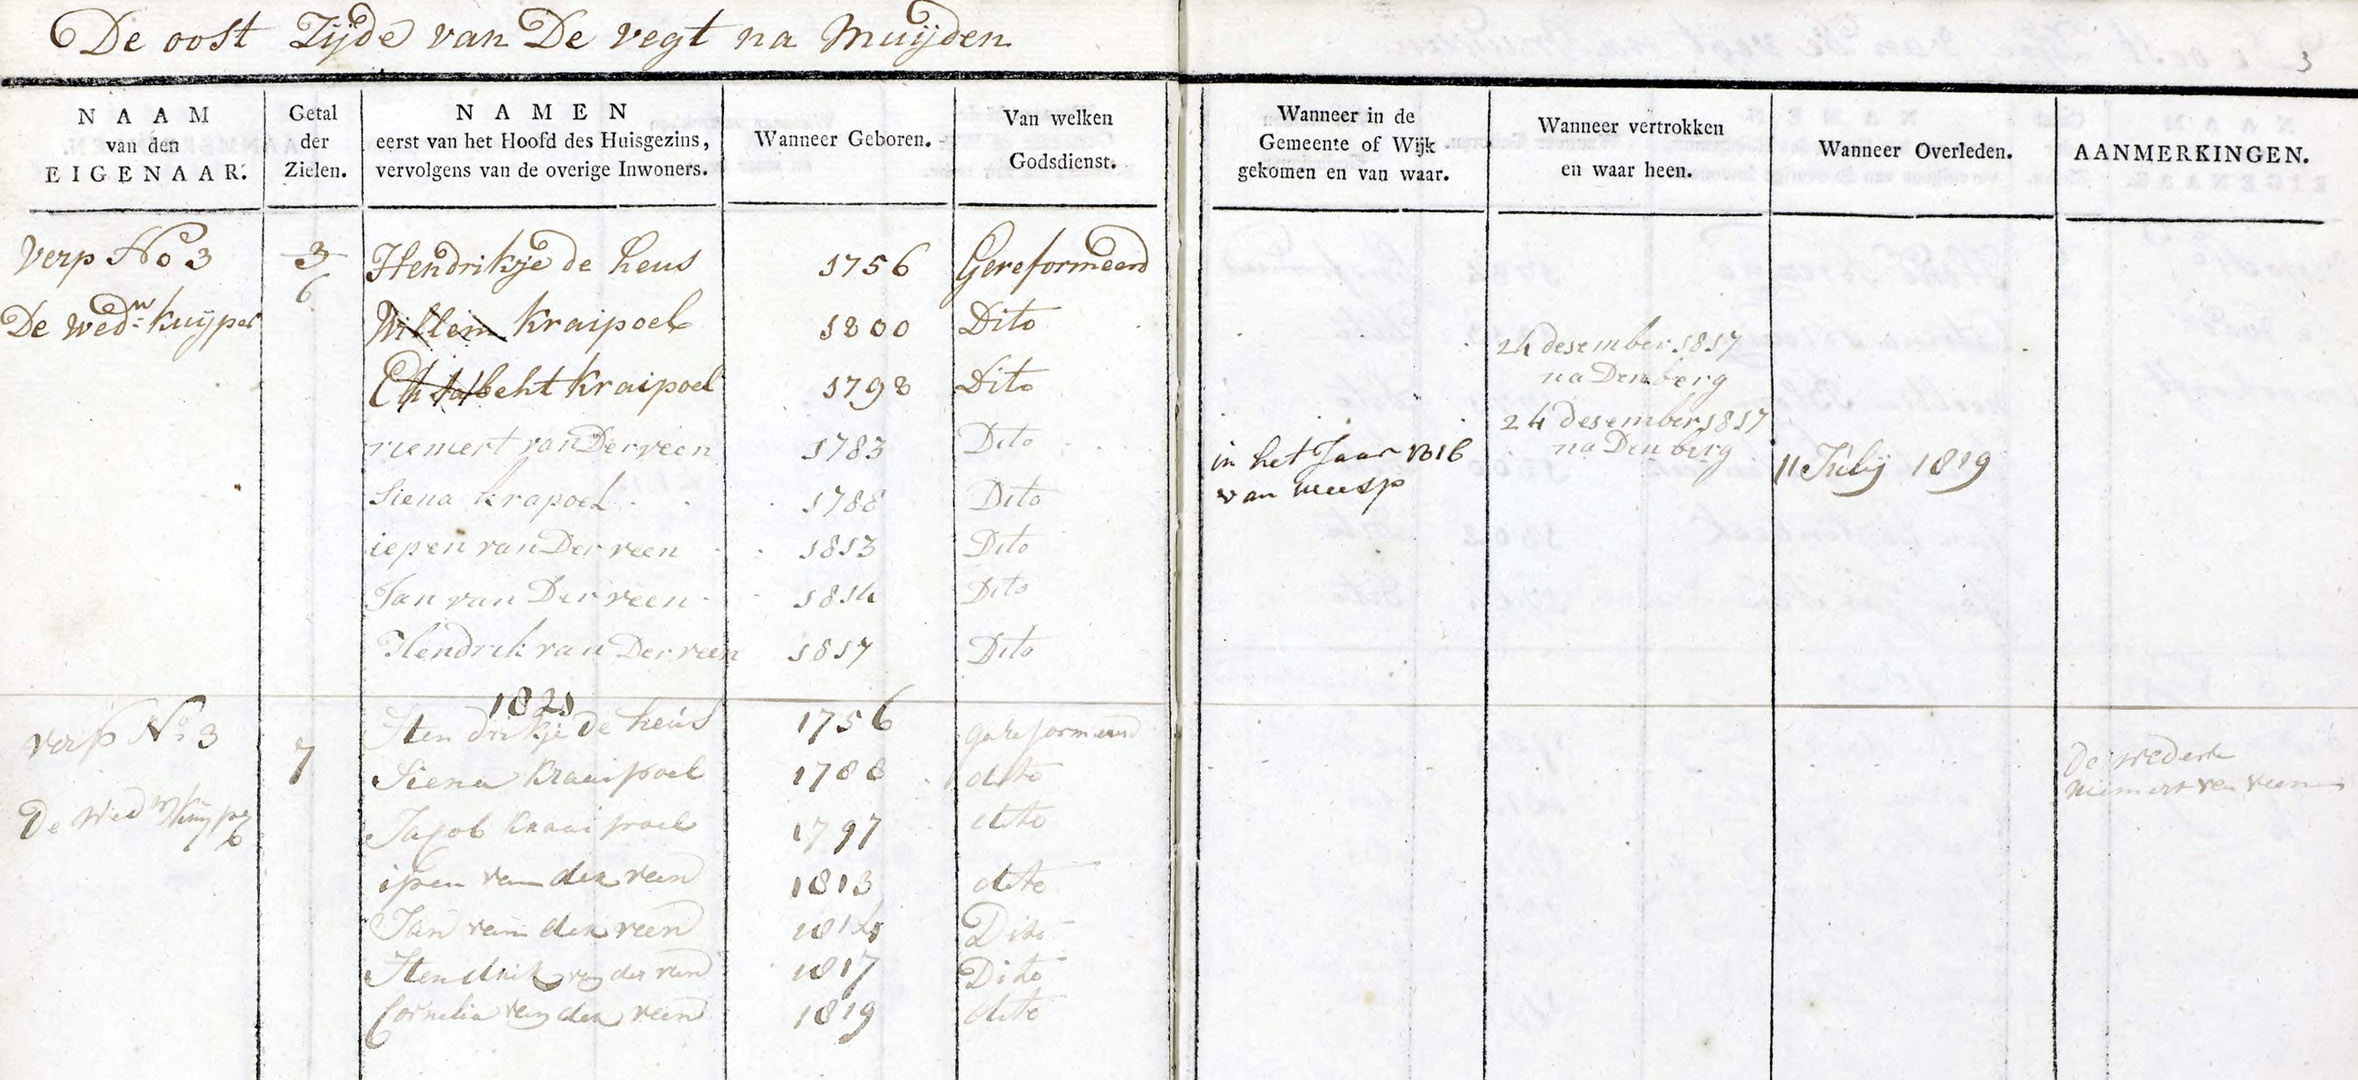 De oost Zijde van De vegt na Muijden
3
NAAM van den EIGENAAR.
Getal der Zielen.
NAMEN eerst van het Hoofd des Huisgezins, vervolgens van de overige Inwoners.
Wanneer Geboren.
Van welken Godsdienst.
Wanneer in de Gemeente of Wijk gekomen en van waar.
Wanneer vertrokken en waar heen.
Wanneer Overleden.
AANMERKINGEN.
Verp No 3 3 Hendrikje de heus 1756 Gereformeerd
6
De wedw kuijper Willem Kraipoel 1800 Dito 24 desember 1817 na Den berg
Elisabeht Kraipoel 1798 Dito 24 desember 1817 na Den berg
riemert van Der veen 1783 Dito in het Jaar 1816 van weesp 11 Julij 1819
Siena krapoel 1788 Dito
iepen van Der veen 1813 Dito
Jan van Der veen 1814 Dito
Hendrik van Der veen 1817 Dito
1821
verp No 3 7 Hendrikje de heus 1756 gereformeerd
De Wedw kuyper Siena Kraaipoel 1788 dito De wedewe riemert van veen
Jacob Kraaipoel 1797 dito
ipen van der veen 1813 dito
Jan van der veen 1814 Dito
Hendrik van der veen 1817 Dito
Cornelia van der veen 1819 dito